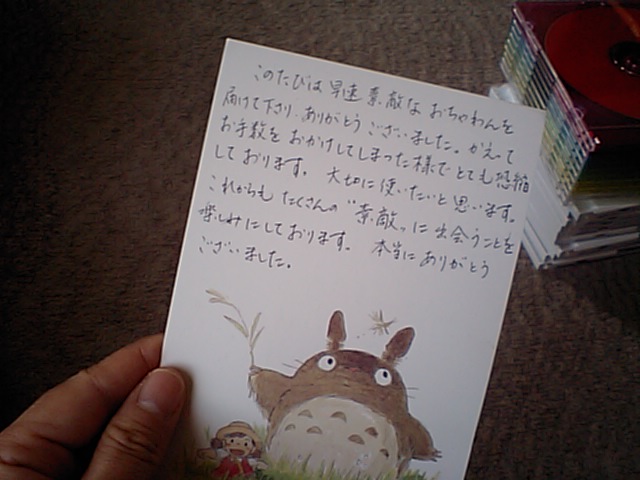 このたびは早速素敵なおちゃわんを
届けて下さり、ありがとうございました。かえって
お手数をおかけしてしまった様でとても恐縮
しております。大切に使いたいと思います。
これからもたくさんの〝素敵〟に出会うことを
楽しみにしております。本当にありがとう
ございました。